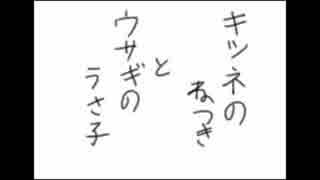 キツネの
ねつき
と
ウサギの
うさ子